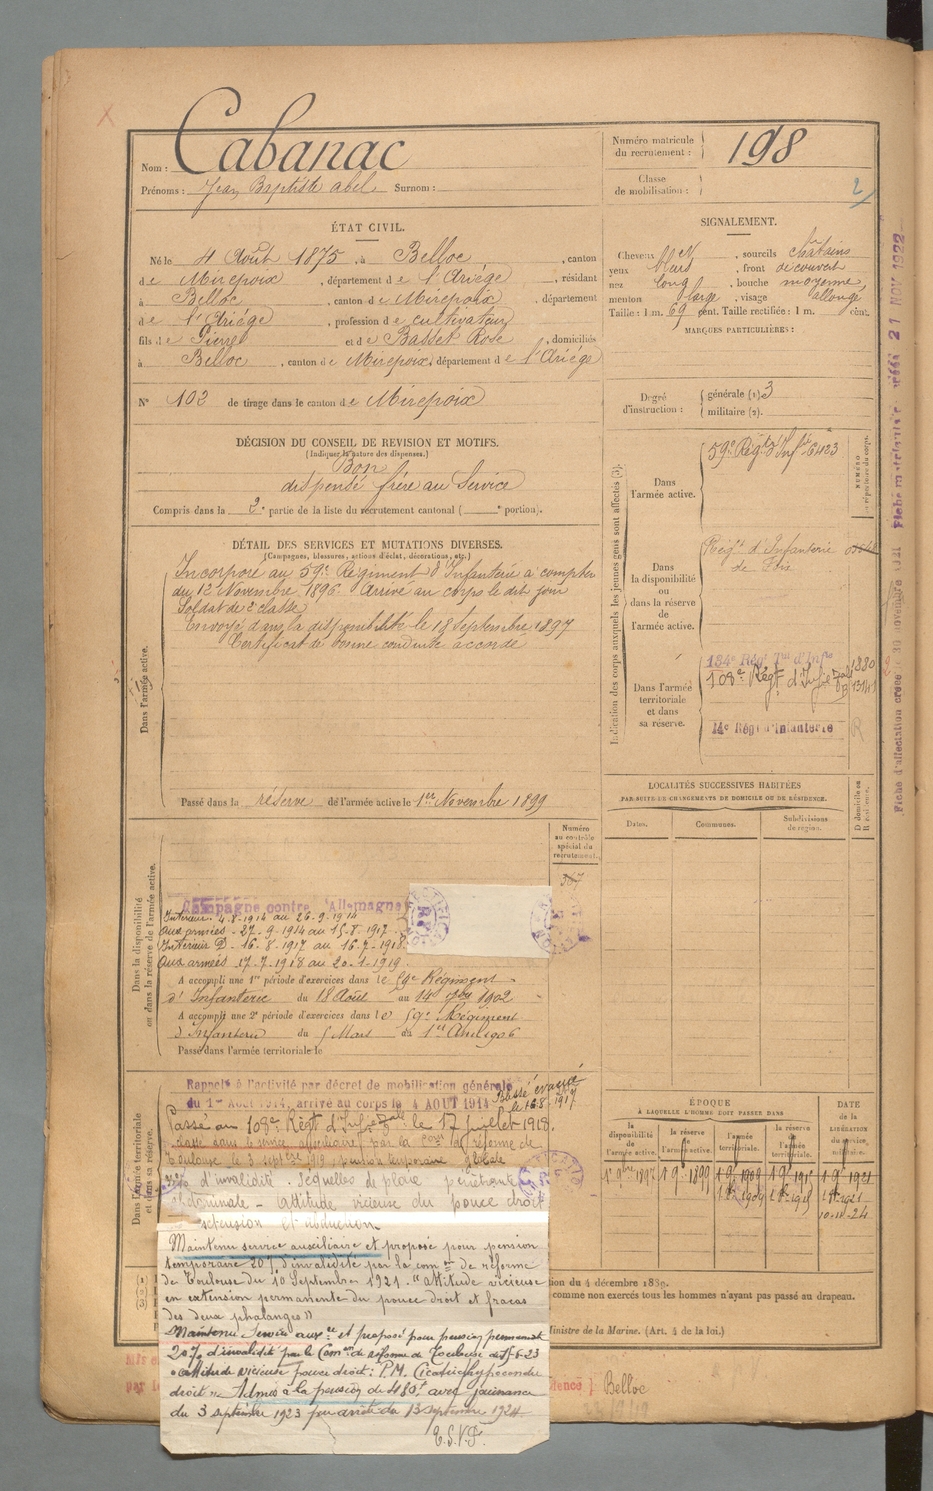 Nom : Cabanac
Prénoms : Jean Baptiste abel Surnom :
Numéro matricule du recrutement : 198
Classe de mobilisation :
2
ÉTAT CIVIL.
Né le 4 Août 1875, à Belloc, canton
de Mirepoix, département de l'Ariège, résidant
à Belloc, canton de Mirepoix, département
de l'Ariége, profession de cultivateur
fils de Pierre et de Basset Rose, domiciliés
à Belloc, canton de Mirepoix, département de l'Ariége
N° 102 de tirage dans le canton de Mirepoix
DÉCISION DU CONSEIL DE REVISION ET MOTIFS.
(Indiquer la nature des dispenses.)
Bon
dispensé frère au Service
Compris dans la 2e partie de la liste du recrutement cantonal ( e portion).
SIGNALEMENT.
Cheveux, sourcils châtains
yeux bleus, front découvert
nez long, bouche moyenne,
menton large, visage allongé
Taille : 1 m. 69 cent. Taille rectifiée : 1 m. cent.
MARQUES PARTICULIÈRES :
Degré d'instruction :
générale (1) 3
militaire (2).
DÉTAIL DES SERVICES ET MUTATIONS DIVERSES.
(Campagnes, blessures, actions d'éclat, décorations, etc.)
Dans l'armée active.
Incorporé au 59e Régiment d'Infanterie à compter
du 12 Novembre 1896. Arrivé au corps le dit jour
Soldat de 2e classe
Envoyé dans la disponibilité le 18 Septembre 1897
Certificat de bonne conduite accordé
Passé dans la réserve de l'armée active le 1er Novembre 1899
Indication des corps auxquels les jeunes gens sont affectés (3).
NUMÉRO au répertoire du corps.
Dans l'armée active.
59e Régt d'Infie 6423
Dans la disponibilité ou dans la réserve de l'armée active.
Régt d'Infanterie
de Foix
Dans l'armée territoriale et dans sa réserve.
134e Régt Tal d'Infie 1880
108e Régt d'Infie
14e Régt d'Infanterie
R
LOCALITÉS SUCCESSIVES HABITÉES
PAR SUITE DE CHANGEMENTS DE DOMICILE OU DE RÉSIDENCE.
Dates. Communes. Subdivisions de région. D domicile ou R résidence.
Numéro au contrôle spécial du recrutement.
367
Dans la disponibilité ou dans la réserve de l'armée active.
Campagne contre l'Allemagne
Intérieur. 4-8-1914 au 26-9-1914
aux armées - 27-9-1914 au 15-8-1917
Intérieur D - 16-8-1917 au 16-7-1918
Aux armées 17-7-1918 au 20-1-1919.
A accompli une 1re période d'exercices dans le 59e Régiment
d'Infanterie du 18 Août au 14 7bre 1902
A accompli une 2e période d'exercices dans le 59e Régiment
d'Infanterie du 5 Mars au 1er Avril 1906
Passé dans l'armée territoriale le
Dans l'armée territoriale et dans sa réserve.
Rappelé à l'activité par décret de mobilisation générale
du 1er AOUT 1914, arrivé au corps le 4 AOUT 1914
Blessé évacué
le 16-8-1917
Passé au 108e Régt d'Infie Tale le 17 juillet 1918.
classé dans le service auxiliaire par la Con de réforme de
Toulouse le 3 septbre 1919, pension temporaire globale
d'invalidité. Séquelles de plaie pénétrante
abdominale - attitude vicieuse du pouce droit
extension et abduction
Maintenu service auxiliaire et proposé pour pension
temporaire 20% d'invalidité par la comon de réforme
de Toulouse du 10 Septembre 1921. "attitude vicieuse
en extension permanente du pouce droit et fracas
des deux phalanges"
Maintenu Service auxre et proposé pour pension permanente
20% d'invalidité par la Comon de réforme de Toulouse
attitude vicieuse pouce droit : P.M. Cicatrice hypocondre
droit". Admis à la pension de 480f avec jouissance
du 3 septembre 1923 par arrêté du 13 septembre 1924
E.S.V.P.
ÉPOQUE
À LAQUELLE L'HOMME DOIT PASSER DANS
la disponibilité de l'armée active. la réserve de l'armée active. l'armée territoriale. la réserve de l'armée territoriale.
DATE de la LIBÉRATION du service militaire.
1 9bre 1897 1 9 1899 1 9 1909 1 9 1915 1 9 1921
10-11-24
comme non exercés tous les hommes n'ayant pas passé au drapeau.
Ministre de la Marine. (Art. 4 de la loi.)
Belloc
Fiche d'affectation créée le 30 novembre
Fiche matricule créée 21 NOV 1922